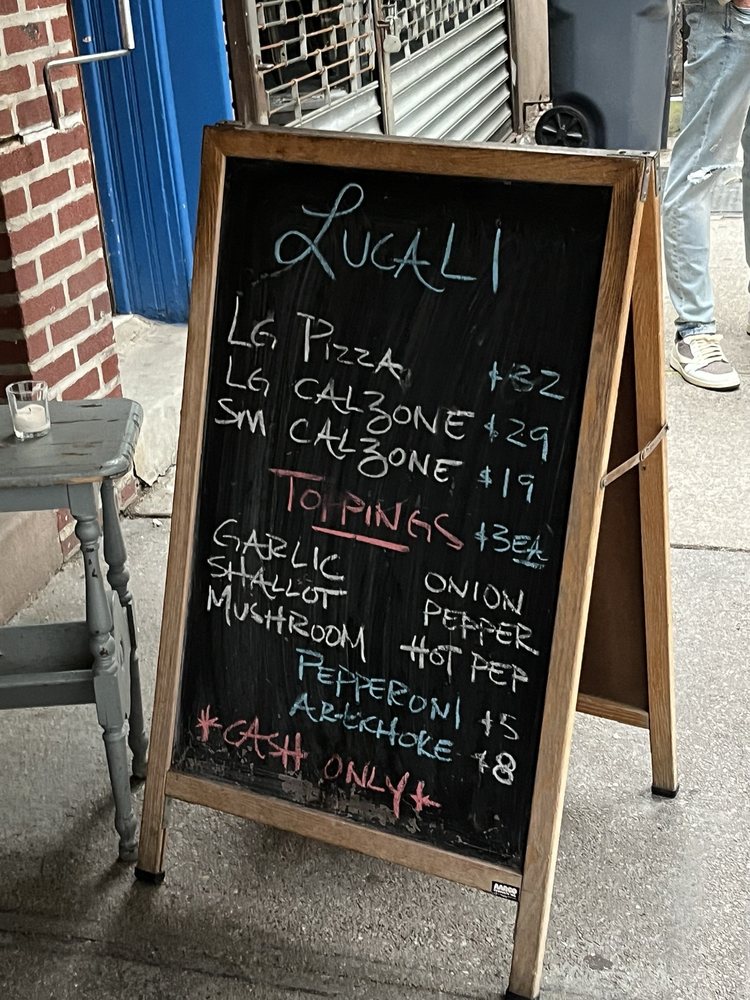 LUCALI
LG PIZZA $32
LG CALZONE $29
SM CALZONE $19
TOPPINGS $3EA
GARLIC ONION
SHALLOT PEPPER
MUSHROOM HOT PEP
PEPPERONI $5
ARTICHOKE $8
*CASH ONLY*
AARCO